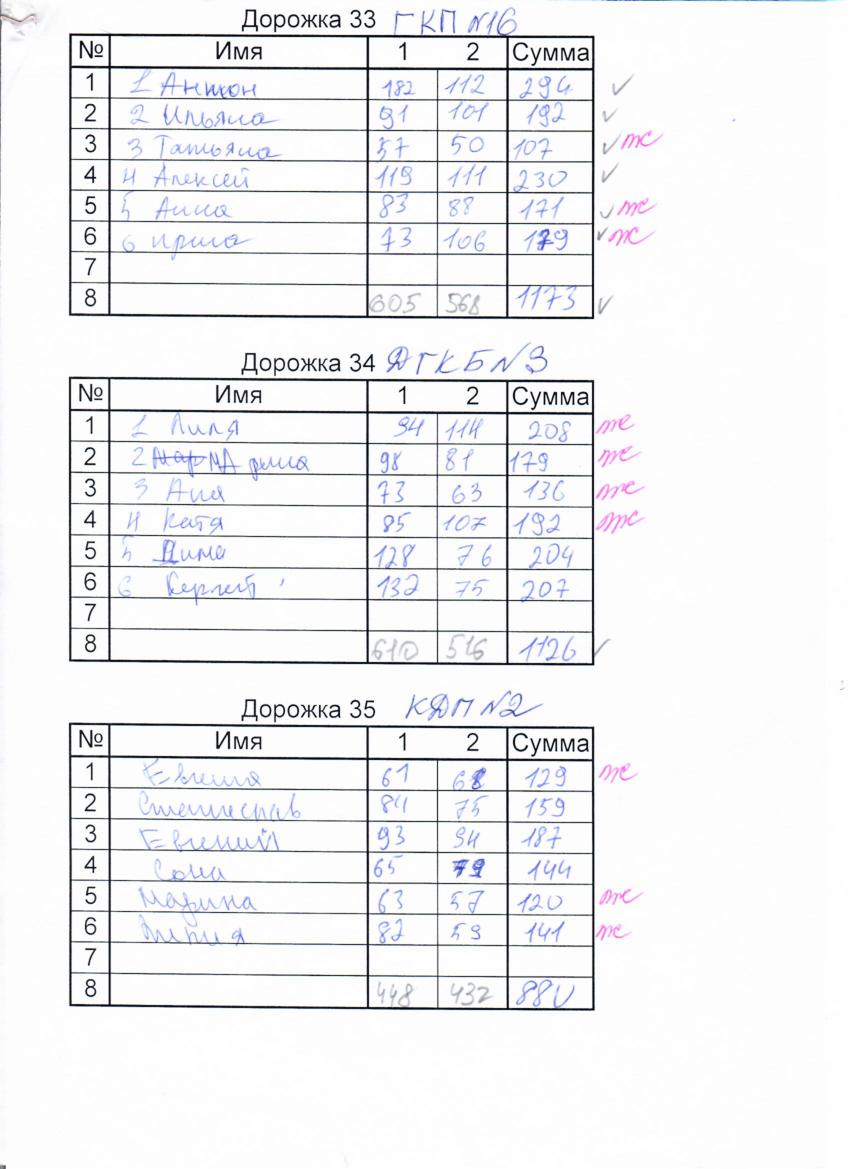 Дорожка 33 ГКП №16
№ Имя 1 2 Сумма
1 1 Антон 182 112 294 ✓
2 2 Ильяна 91 101 192 ✓
3 3 Татьяна 57 50 107 ✓ ж
4 4 Алексей 119 111 230 ✓
5 5 Анна 83 88 171 ✓ ж
6 6 Ирина 73 106 179 ✓ ж
7
8 605 568 1173 ✓
Дорожка 34 ДГКБ №3
№ Имя 1 2 Сумма
1 1 Лиля 94 114 208 ж
2 2 Марина 98 81 179 ж
3 3 Аня 73 63 136 ж
4 4 Катя 85 107 192 ж
5 5 Дима 128 76 204
6 6 Сергей 132 75 207
7
8 610 516 1126 ✓
Дорожка 35 КДП №2
№ Имя 1 2 Сумма
1 61 68 129 ж
2 84 75 159
3 Евгений 93 94 187
4 65 79 144
5 Марина 63 57 120 ж
6 Лилия 82 59 141 ж
7
8 448 432 880